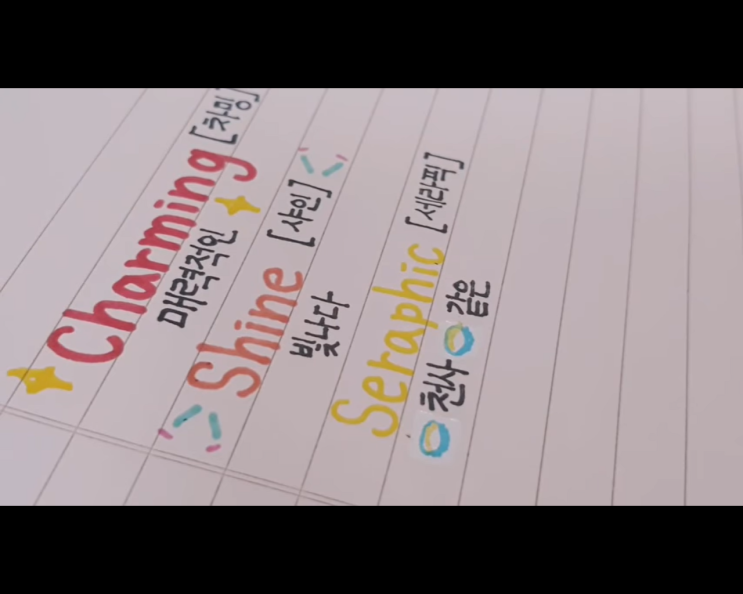 Charming [차밍]
매력적인
Shine [샤인]
빛나다
Seraphic [세라픽]
천사 같은